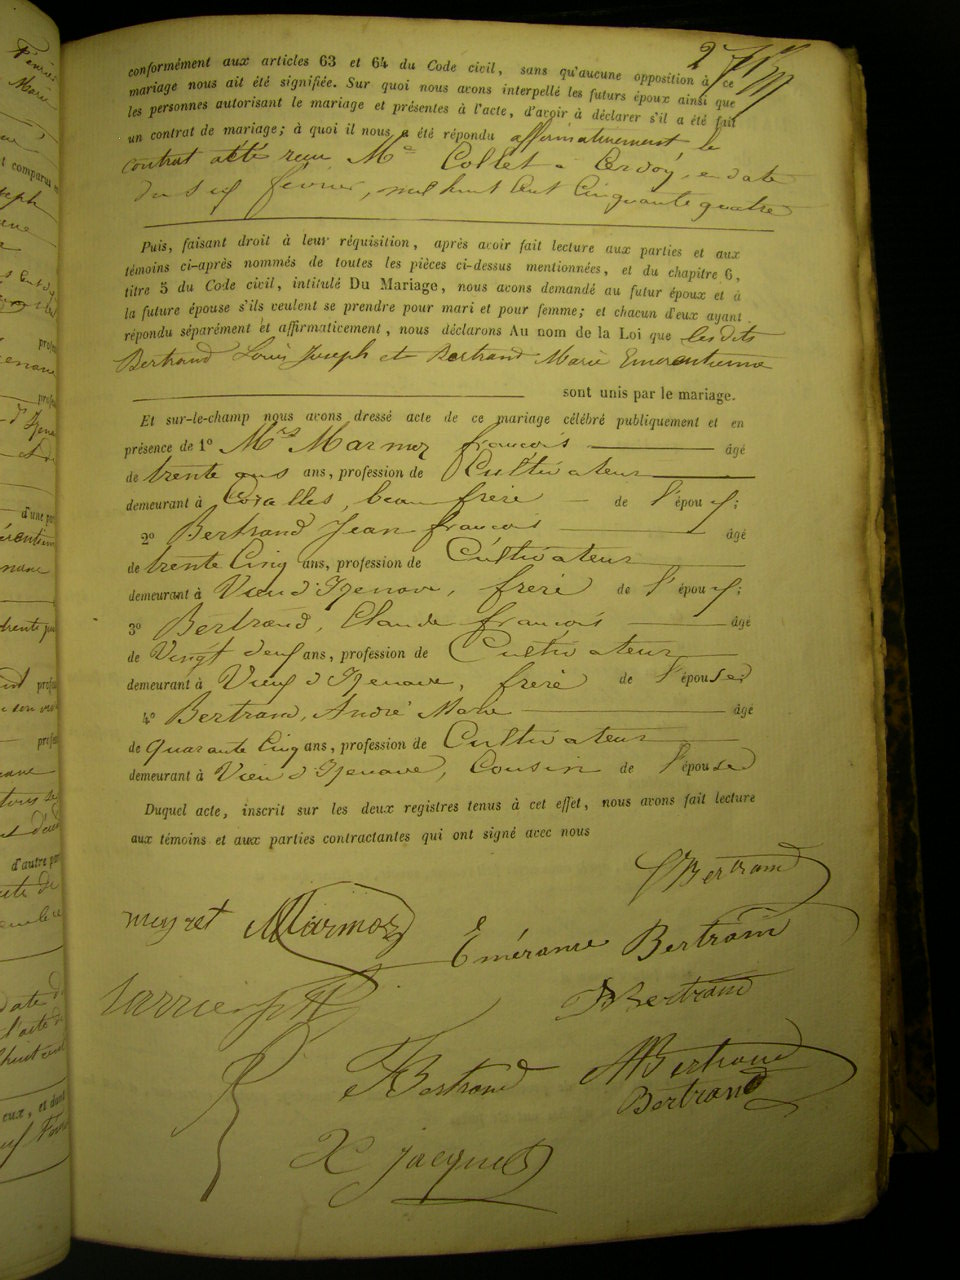 2
conformément aux articles 63 et 64 du Code civil, sans qu'aucune opposition à ce
mariage nous ait été signifiée. Sur quoi nous avons interpellé les futurs époux ainsi que
les personnes autorisant le mariage et présentes à l'acte, d'avoir à déclarer s'il a été fait
un contrat de mariage; à quoi il nous a été répondu affirmativement le
contrat a été reçu Me Collet a Cerdon, en date
du six février, mil huit cent cinquante quatre
Puis, faisant droit à leur réquisition, après avoir fait lecture aux parties et aux
témoins ci-après nommés de toutes les pièces ci-dessus mentionnées, et du chapitre 6,
titre 5 du Code civil, intitulé Du Mariage, nous avons demandé au futur époux et à
la future épouse s'ils veulent se prendre pour mari et pour femme; et chacun d'eux ayant
répondu séparément et affirmativement, nous déclarons Au nom de la Loi que lesdits
Bertrand Louis Joseph et Bertrand Marie Emerentienne
sont unis par le mariage.
Et sur-le-champ nous avons dressé acte de ce mariage célébré publiquement et en
présence de 1º Mrs Marmoz françois âgé
de trente ans ans, profession de Cultivateur
demeurant à Coralles, beau frère de l'époux;
2º Bertrand Jean françois âgé
de trente Cinq ans, profession de Cultivateur
demeurant à Vieu d'Izenave, frere de l'époux;
3º Bertrand, Claude françois âgé
de Vingt deux ans, profession de Cultivateur
demeurant à Vieux d'Izenave, frere de l'épouse
4º Bertrand, André Marie âgé
de quarante Cinq ans, profession de Cultivateur
demeurant à Vieu d'Izenave, Cousin de l'épouse
Duquel acte, inscrit sur les deux registres tenus à cet effet, nous avons fait lecture
aux témoins et aux parties contractantes qui ont signé avec nous
Bertrand
meyret Marmoz
Emérance Bertrand
Bertrand
Bertrand Bertrand
Bertrand
X jacquet